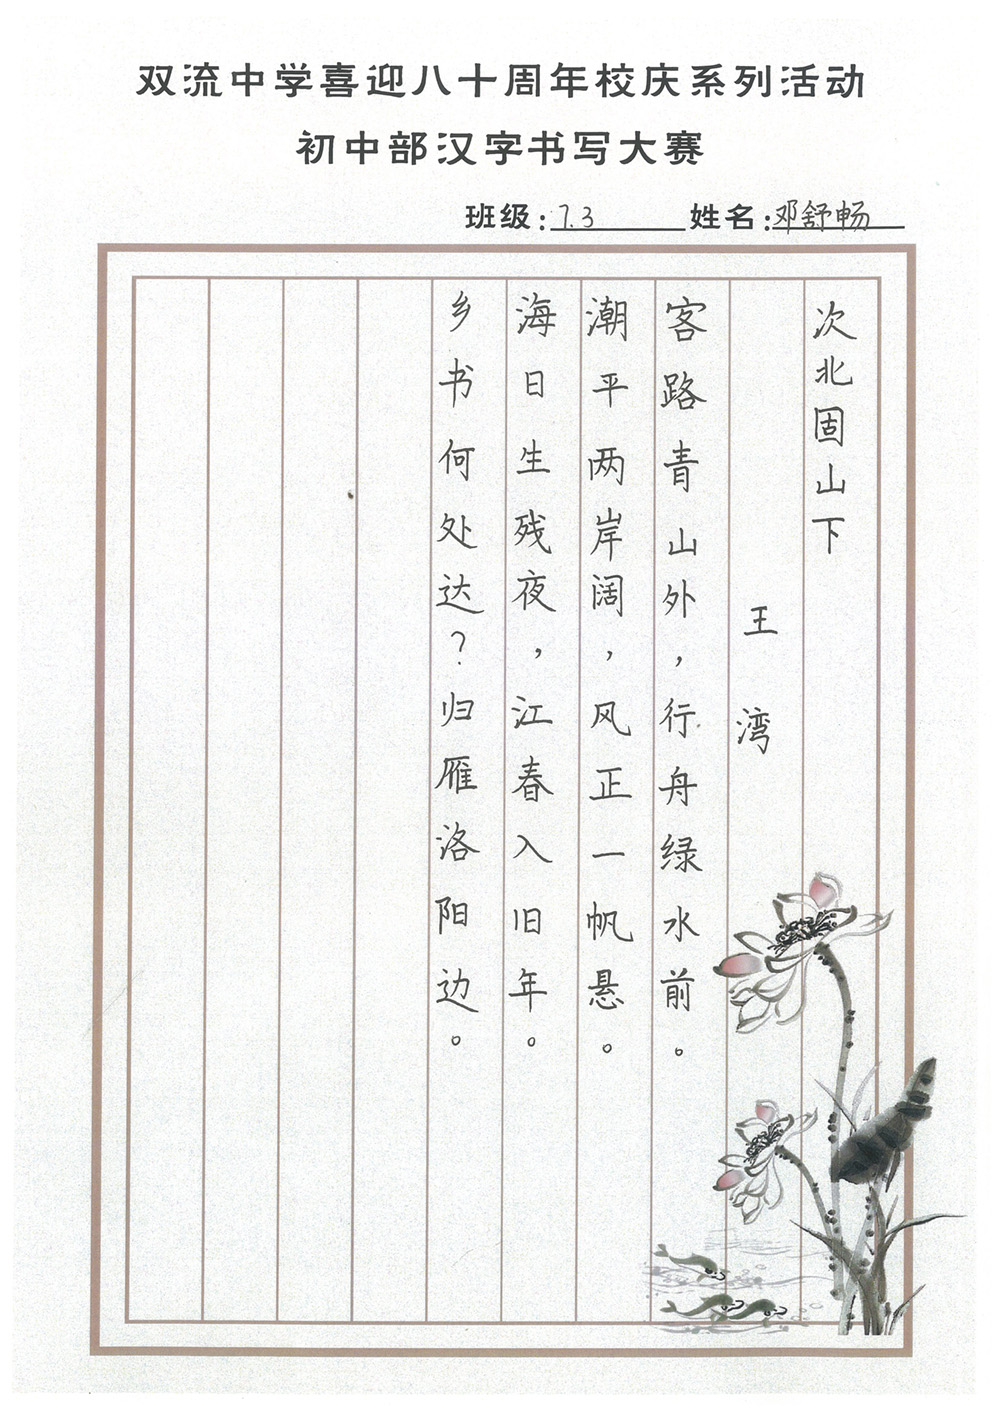 双流中学喜迎八十周年校庆系列活动
初中部汉字书写大赛
班级：7.3 姓名：邓舒畅
次北固山下
王湾
客路青山外，行舟绿水前。
潮平两岸阔，风正一帆悬。
海日生残夜，江春入旧年。
乡书何处达？归雁洛阳边。